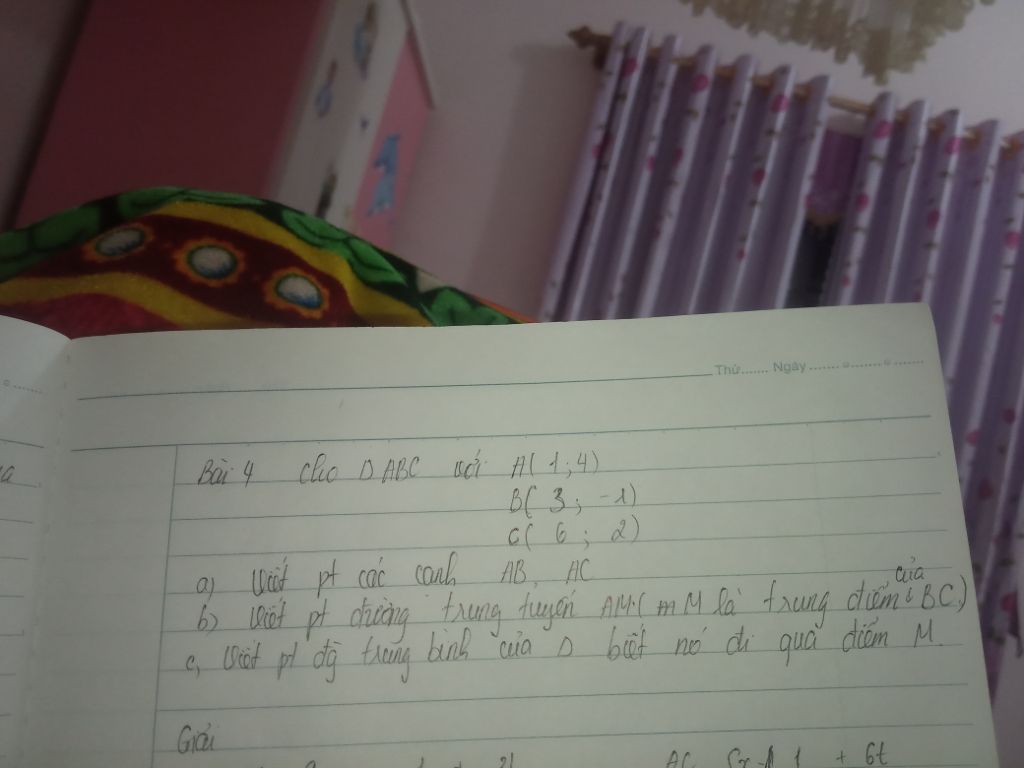 Thứ....... Ngày
Bài 4 Cho Δ ABC với A( 1 ; 4)
B( 3 ; -1)
C( 6 ; 2)
a) Viết pt các cạnh AB, AC
của
b) Viết pt đường trung tuyến AM.( M là trung điểm BC)
c, Viết pt đg trung bình của Δ biết nó đi qua điểm M.
Giải
AC 1 + 6t